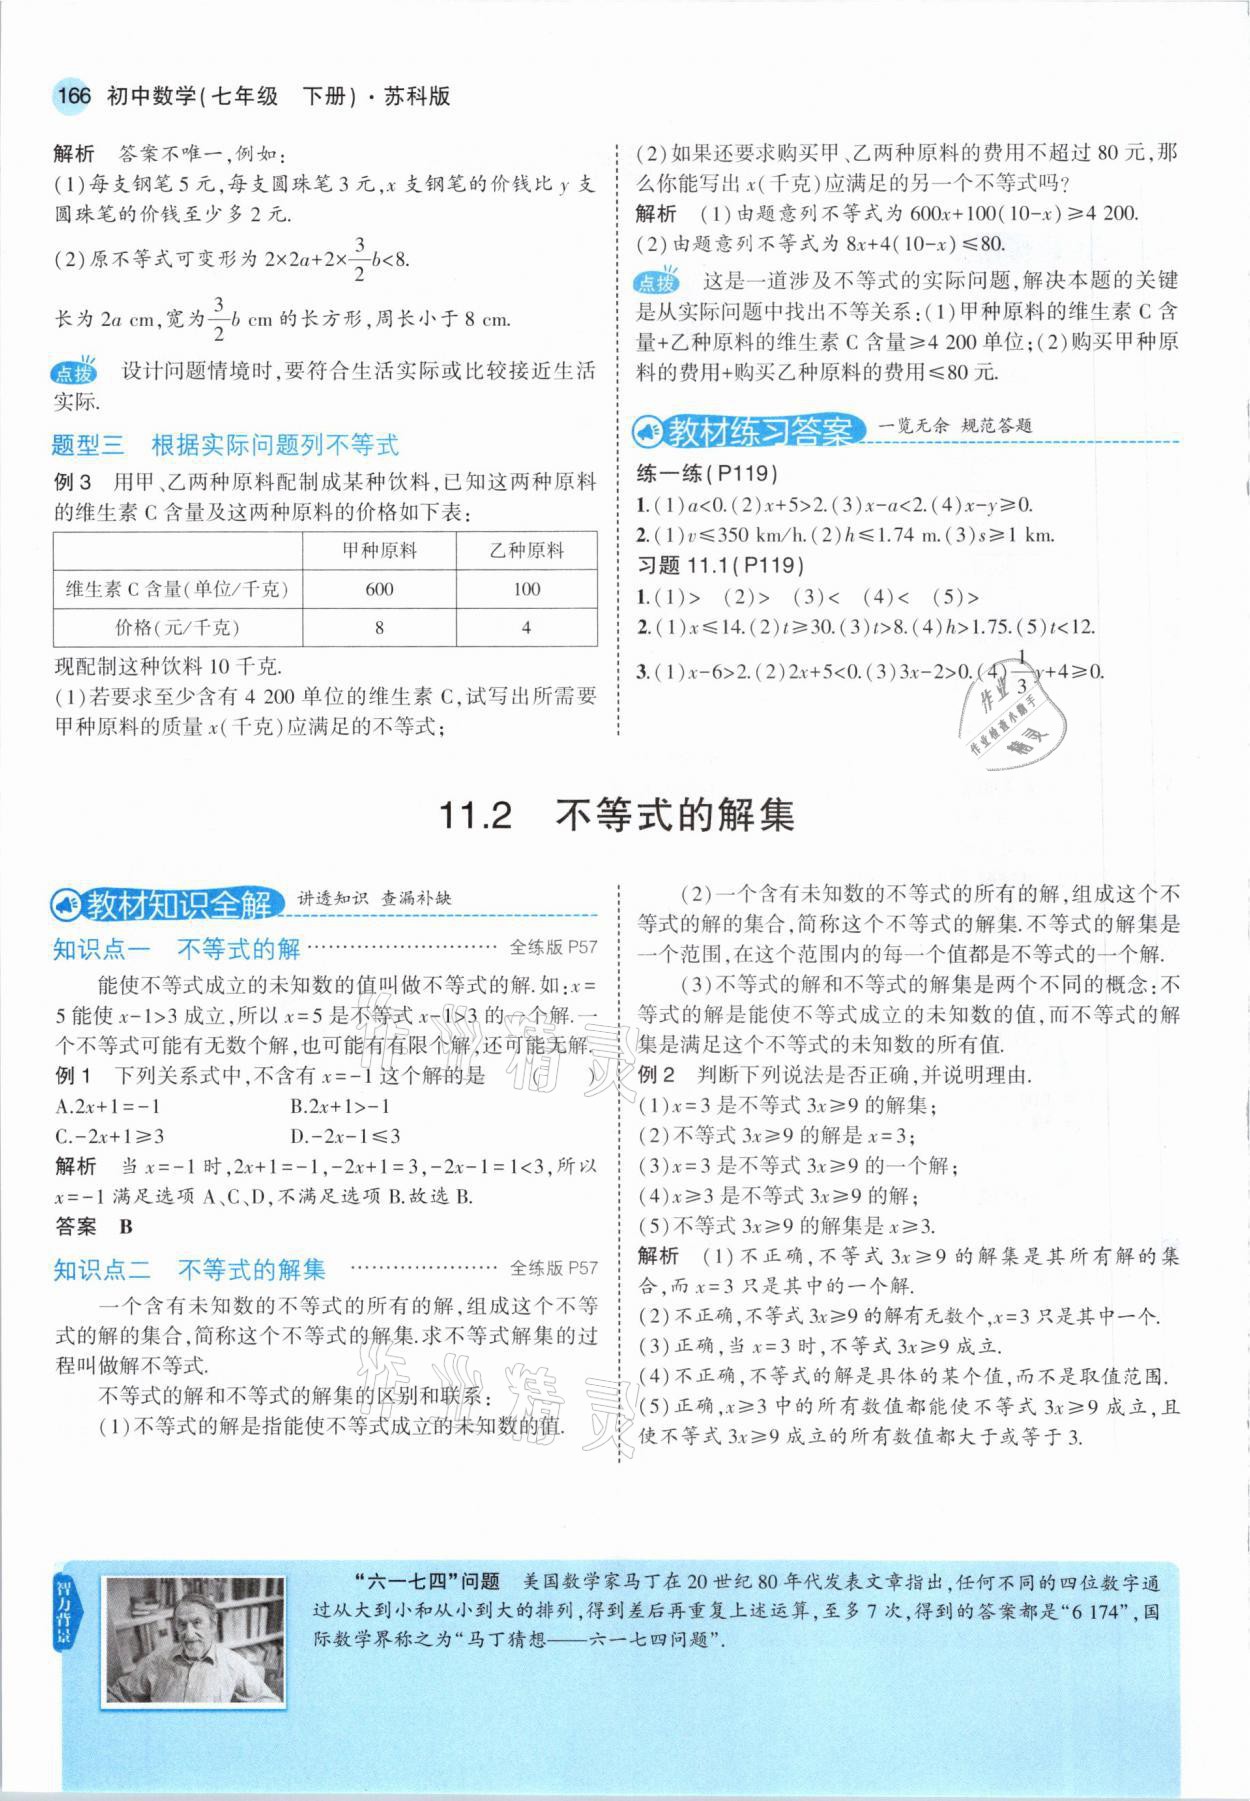 166 初中数学(七年级 下册)·苏科版
解析 答案不唯一,例如:
(1)每支钢笔5元,每支圆珠笔3元,x支钢笔的价钱比y支
圆珠笔的价钱至少多2元.
(2)原不等式可变形为2×2a+2×3/2b<8.
长为2a cm,宽为3/2b cm的长方形,周长小于8 cm.
点拨 设计问题情境时,要符合生活实际或比较接近生活
实际.
题型三 根据实际问题列不等式
例3 用甲、乙两种原料配制成某种饮料,已知这两种原料
的维生素C含量及这两种原料的价格如下表:
甲种原料 乙种原料
维生素C含量(单位/千克) 600 100
价格(元/千克) 8 4
现配制这种饮料10千克.
(1)若要求至少含有4 200单位的维生素C,试写出所需要
甲种原料的质量x(千克)应满足的不等式;
(2)如果还要求购买甲、乙两种原料的费用不超过80元,那
么你能写出x(千克)应满足的另一个不等式吗?
解析 (1)由题意列不等式为600x+100(10-x)≥4 200.
(2)由题意列不等式为8x+4(10-x)≤80.
点拨 这是一道涉及不等式的实际问题,解决本题的关键
是从实际问题中找出不等关系:(1)甲种原料的维生素C含
量+乙种原料的维生素C含量≥4 200单位;(2)购买甲种原
料的费用+购买乙种原料的费用≤80元.
教材练习答案 一览无余 规范答题
练一练(P119)
1.(1)a<0.(2)x+5>2.(3)x-a<2.(4)x-y≥0.
2.(1)v≤350 km/h.(2)h≤1.74 m.(3)s≥1 km.
习题11.1(P119)
1.(1)> (2)> (3)< (4)< (5)>
2.(1)x≤14.(2)t≥30.(3)t>8.(4)h>1.75.(5)t<12.
3.(1)x-6>2.(2)2x+5<0.(3)3x-2>0.(4)1/3y+4≥0.
作业
作业检查小助手
精灵
11.2 不等式的解集
教材知识全解 讲透知识 查漏补缺
知识点一 不等式的解 ………………………… 全练版P57
能使不等式成立的未知数的值叫做不等式的解.如:x=
5能使x-1>3成立,所以x=5是不等式x-1>3的一个解.一
个不等式可能有无数个解,也可能有有限个解,还可能无解.
例1 下列关系式中,不含有x=-1这个解的是 ( )
A.2x+1=-1 B.2x+1>-1
C.-2x+1≥3 D.-2x-1≤3
解析 当x=-1时,2x+1=-1,-2x+1=3,-2x-1=1<3,所以
x=-1满足选项A、C、D,不满足选项B.故选B.
答案 B
知识点二 不等式的解集 ………………… 全练版P57
一个含有未知数的不等式的所有的解,组成这个不等
式的解的集合,简称这个不等式的解集.求不等式解集的过
程叫做解不等式.
不等式的解和不等式的解集的区别和联系:
(1)不等式的解是指能使不等式成立的未知数的值.
(2)一个含有未知数的不等式的所有的解,组成这个不
等式的解的集合,简称这个不等式的解集.不等式的解集是
一个范围,在这个范围内的每一个值都是不等式的一个解.
(3)不等式的解和不等式的解集是两个不同的概念:不
等式的解是能使不等式成立的未知数的值,而不等式的解
集是满足这个不等式的未知数的所有值.
例2 判断下列说法是否正确,并说明理由.
(1)x=3是不等式3x≥9的解集;
(2)不等式3x≥9的解是x=3;
(3)x=3是不等式3x≥9的一个解;
(4)x≥3是不等式3x≥9的解;
(5)不等式3x≥9的解集是x≥3.
解析 (1)不正确,不等式3x≥9的解集是其所有解的集
合,而x=3只是其中的一个解.
(2)不正确,不等式3x≥9的解有无数个,x=3只是其中一个.
(3)正确,当x=3时,不等式3x≥9成立.
(4)不正确,不等式的解是具体的某个值,而不是取值范围.
(5)正确,x≥3中的所有数值都能使不等式3x≥9成立,且
使不等式3x≥9成立的所有数值都大于或等于3.
作业精灵
作业精灵
智力背景
“六一七四”问题 美国数学家马丁在20世纪80年代发表文章指出,任何不同的四位数字通
过从大到小和从小到大的排列,得到差后再重复上述运算,至多7次,得到的答案都是“6 174”,国
际数学界称之为“马丁猜想——六一七四问题”.